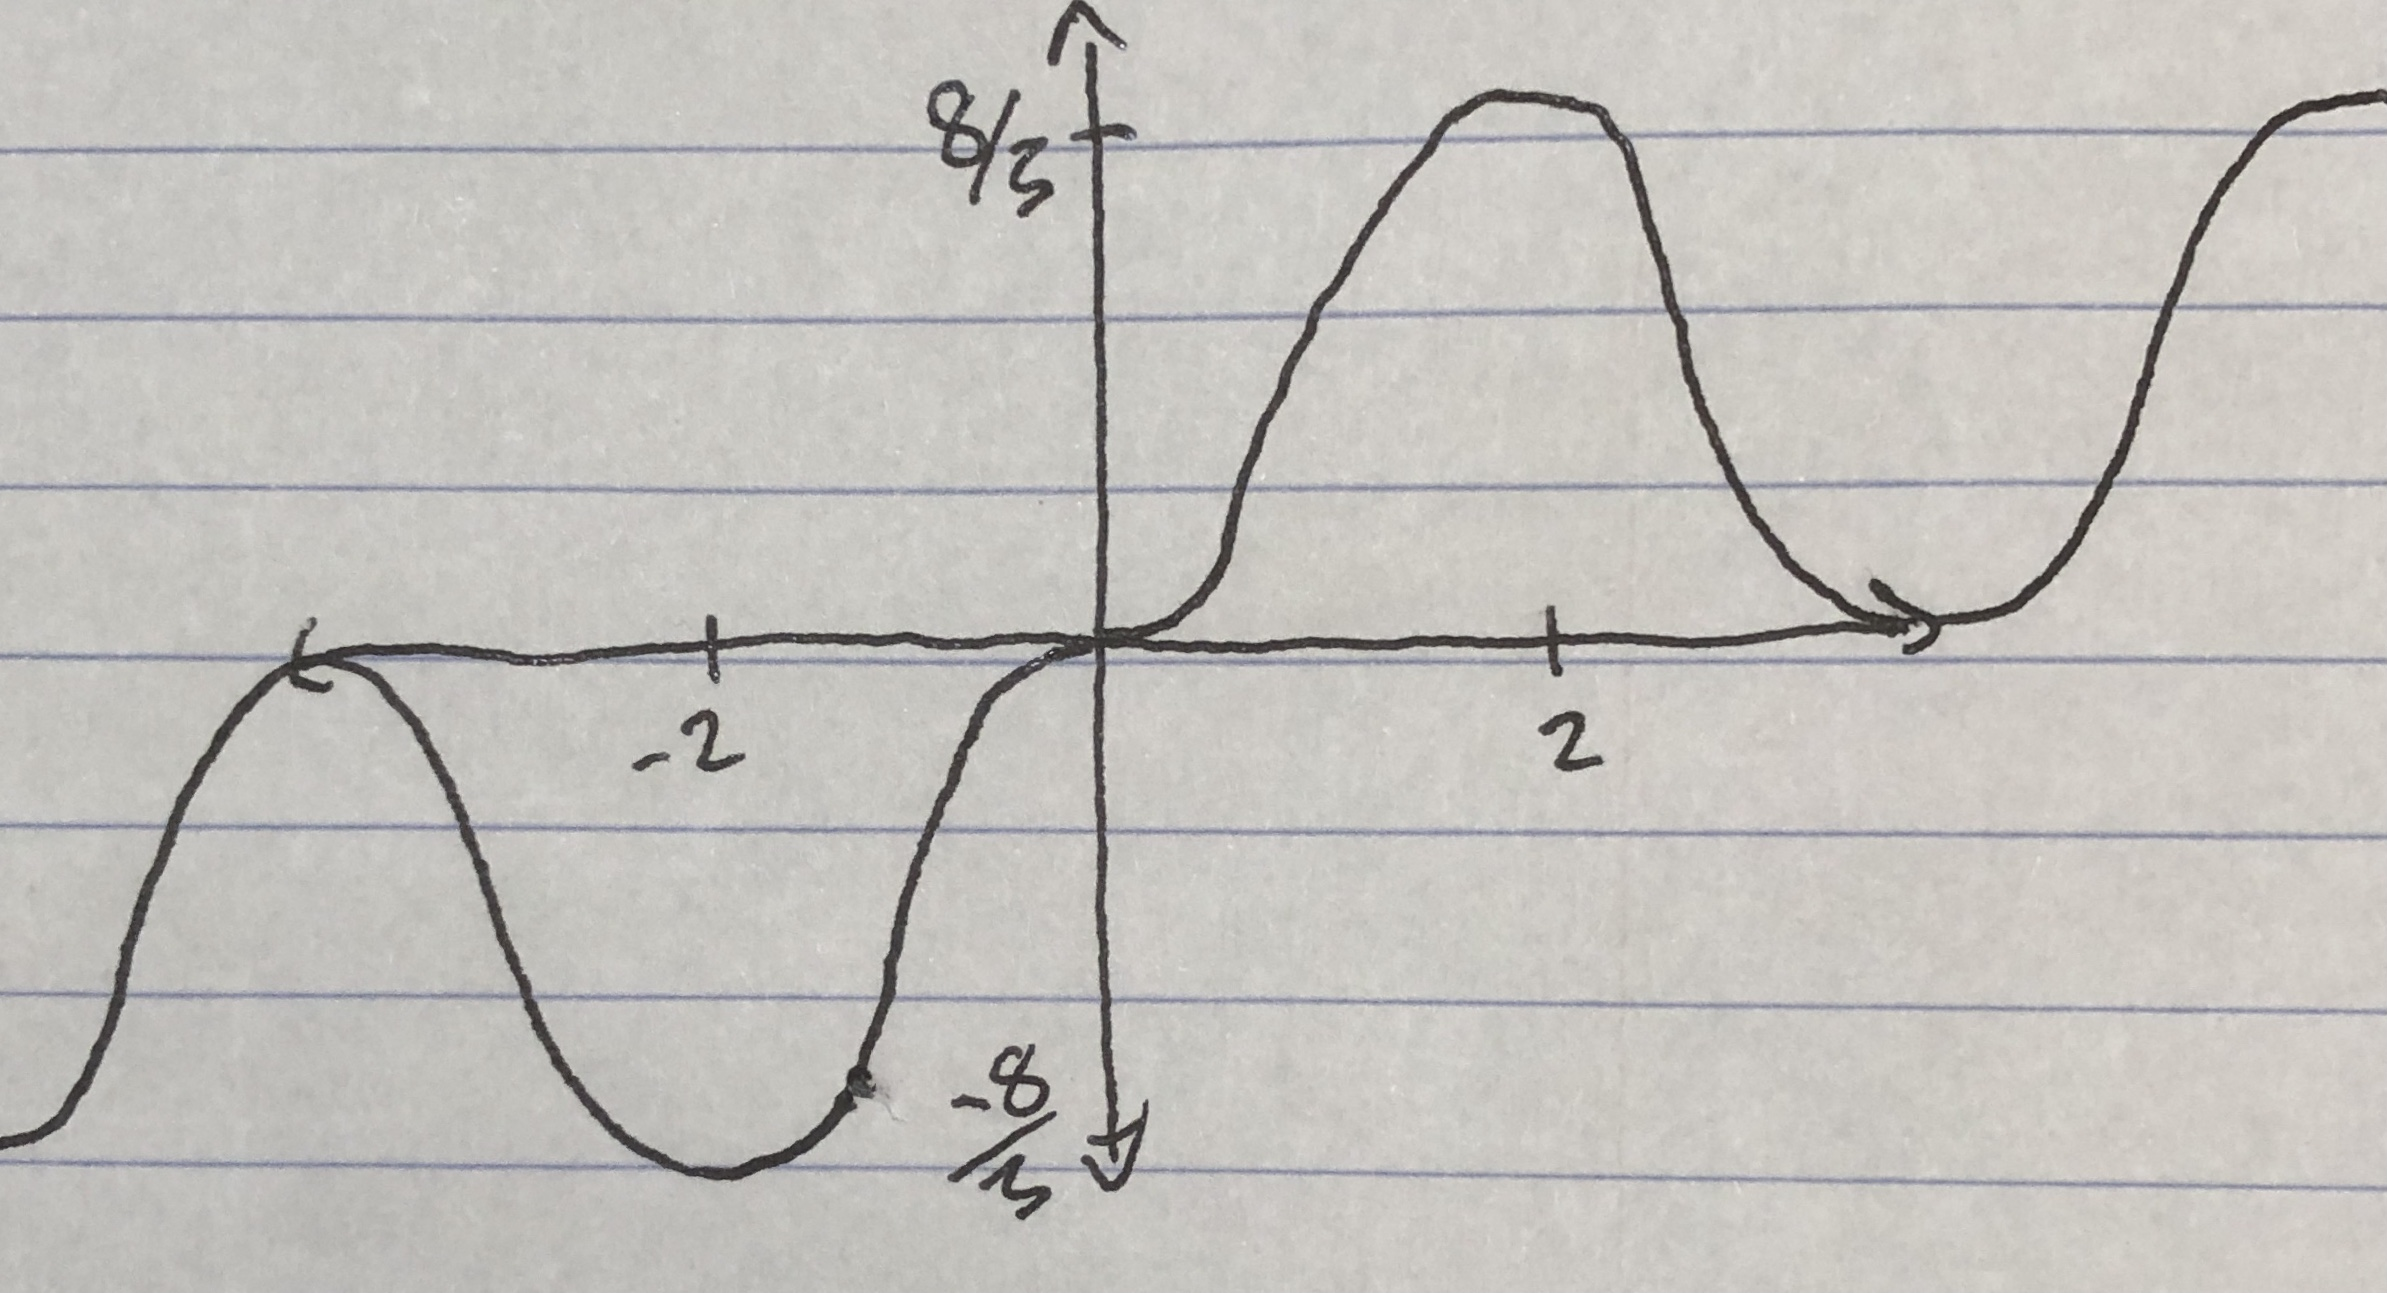 8/3
-2
2
-8/3